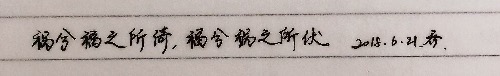 祸兮福之所倚,福兮祸之所伏 2018.6.21.